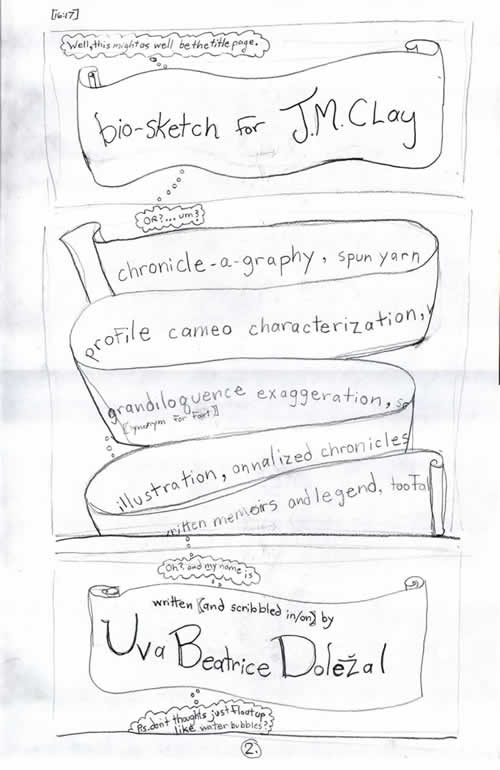 [16:17]
Well, this might as well be the title page.
bio-sketch for J.M. CLay
OR?...um?
chronicle-a-graphy, spun yarn
profile cameo characterization,
grandiloquence exaggeration, so
[[synonym for fart]]
illustration, annalized chronicles
written memoirs and legend, too Fa
Oh? and my name is
written [[and scribbled in/on]] by
Uva Beatrice Doležal
Ps. don't thoughts just float up
like water bubbles?
2.